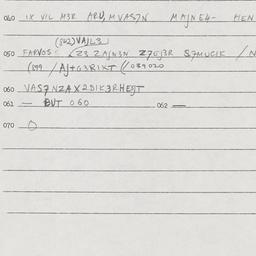 040 IX VIL M3R ARV, MVAS7N MAJNE4- HEN
(542) VAJL3
050 FARVOS Z3 ZAJN3N Z7GJ3R S7MUCIK / N
(899 / AJ+G3RIXT (/ 089020
060 VAS7NZAX2DIK3RHEJT
061 — BUT 060 062 —
070